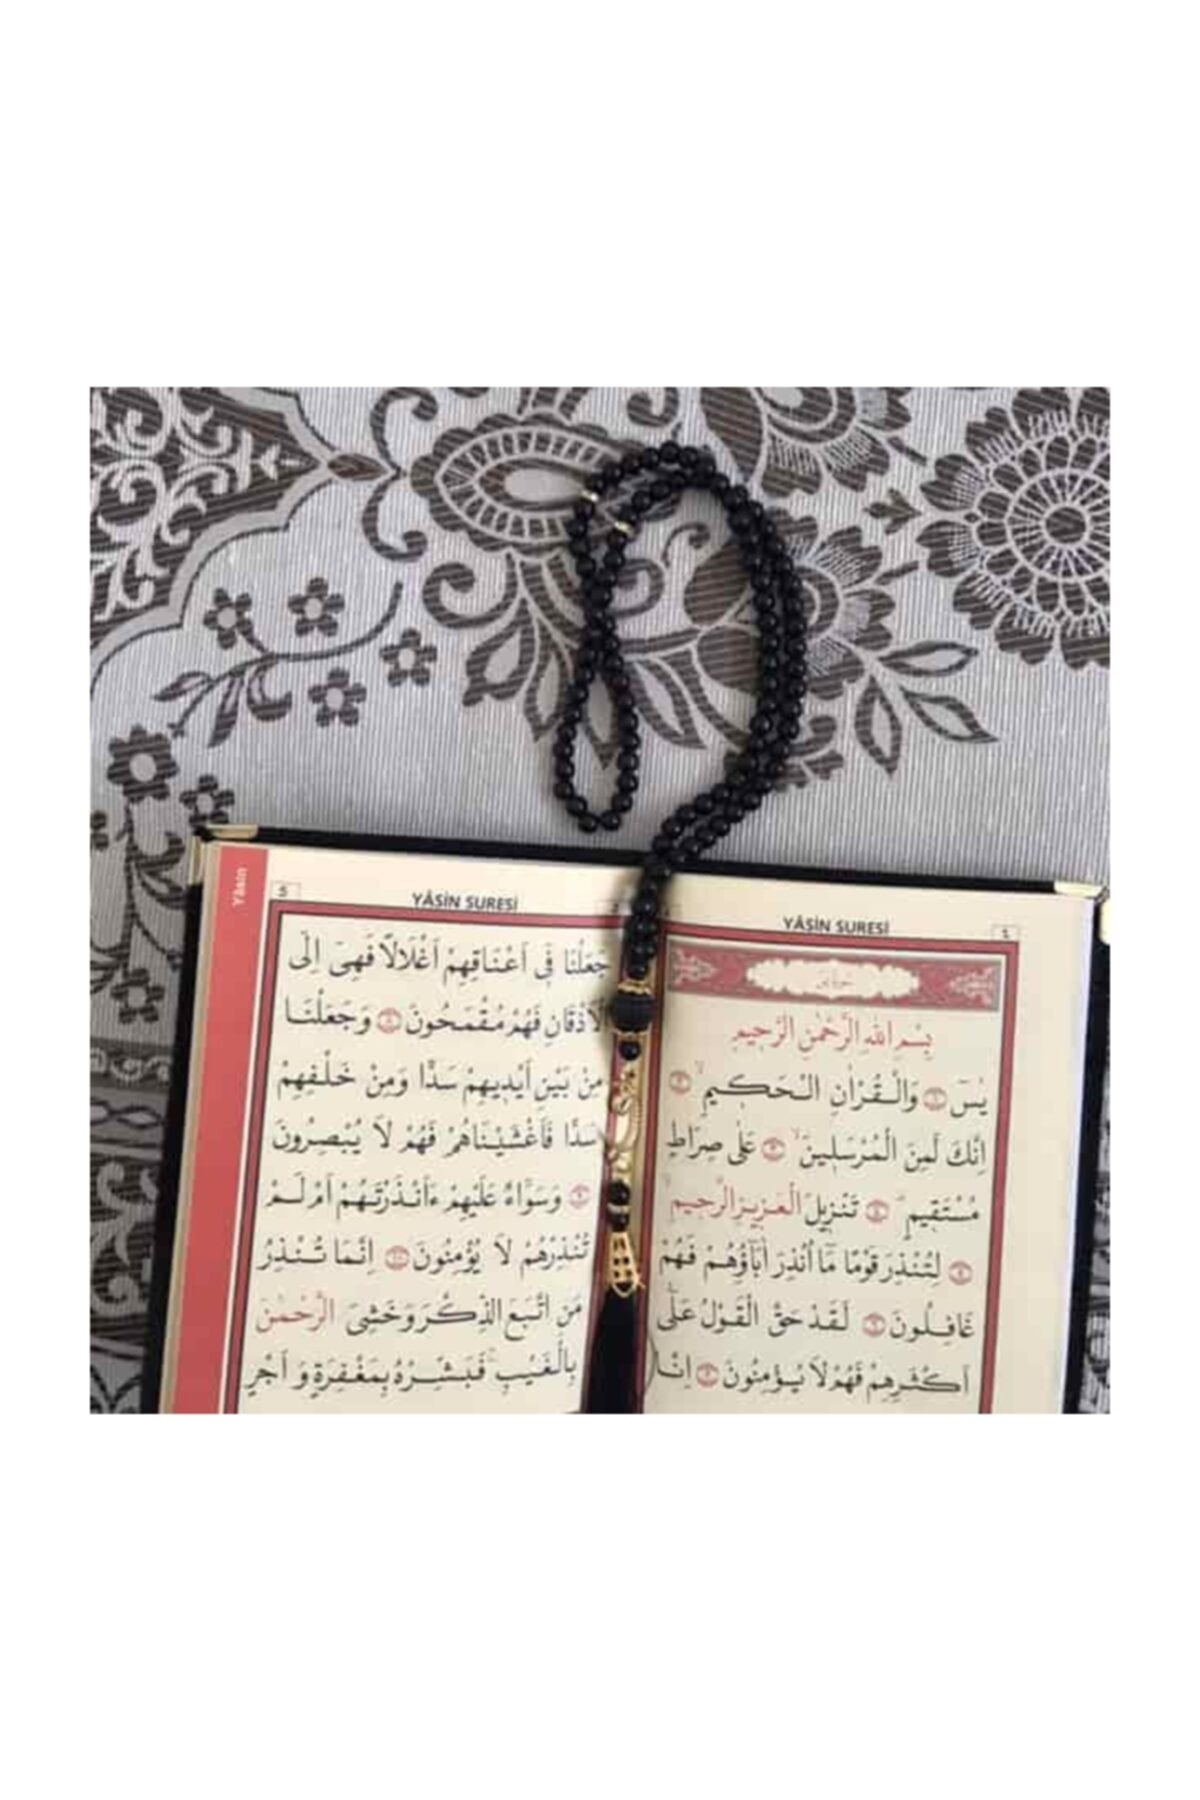 YÂSİN SURESİ
بِسْمِ اللهِ الرَّحْمٰنِ الرَّحِيمِ
يٰسٓ وَالْقُرْاٰنِ الْحَكٖيمِۙ
اِنَّكَ لَمِنَ الْمُرْسَلٖينَۙ عَلٰى صِرَاطٍ
مُسْتَقٖيمٍؕ تَنْزٖيلَ الْعَزٖيزِ الرَّحٖيمِۙ
لِتُنْذِرَ قَوْمًا مَٓا اُنْذِرَ اٰبَٓاؤُهُمْ فَهُمْ
غَافِلُونَ لَقَدْ حَقَّ الْقَوْلُ عَلٰٓى
اَكْثَرِهِمْ فَهُمْ لَا يُؤْمِنُونَ اِنَّا
YÂSİN SURESİ
5
Yâsin
جَعَلْنَا فٖٓي اَعْنَاقِهِمْ اَغْلَالًا فَهِيَ اِلَى
الْاَذْقَانِ فَهُمْ مُقْمَحُونَ وَجَعَلْنَا
مِنْ بَيْنِ اَيْدٖيهِمْ سَدًّا وَمِنْ خَلْفِهِمْ
سَدًّا فَاَغْشَيْنَاهُمْ فَهُمْ لَا يُبْصِرُونَ
وَسَوَٓاءٌ عَلَيْهِمْ ءَاَنْذَرْتَهُمْ اَمْ لَمْ
تُنْذِرْهُمْ لَا يُؤْمِنُونَ اِنَّمَا تُنْذِرُ
مَنِ اتَّبَعَ الذِّكْرَ وَخَشِيَ الرَّحْمٰنَ
بِالْغَيْبِۚ فَبَشِّرْهُ بِمَغْفِرَةٍ وَاَجْرٍ